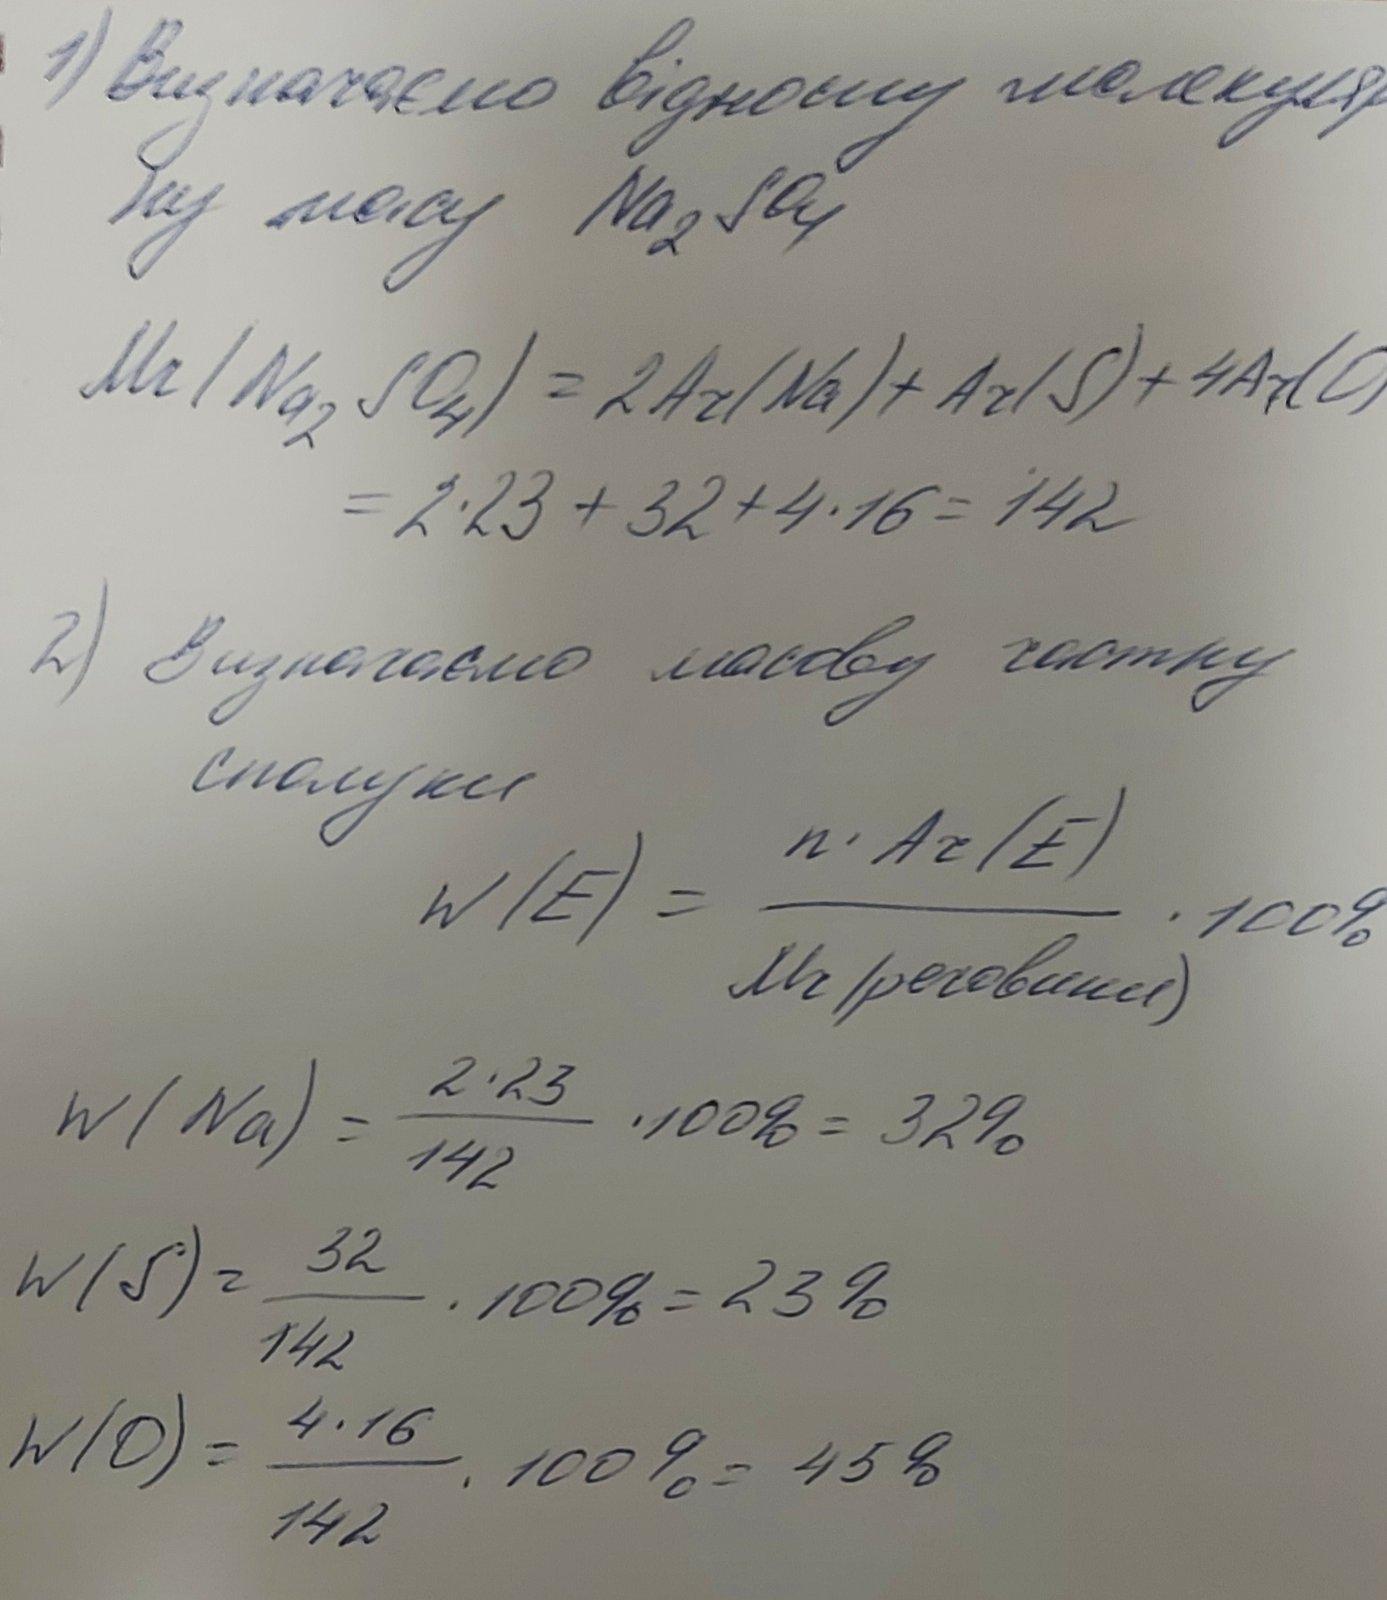 1) Визначаємо відносну молекуляр
ну масу Na₂SO₄
Mr(Na₂SO₄) = 2Ar(Na) + Ar(S) + 4Ar(O)
= 2·23 + 32 + 4·16 = 142
2) Визначаємо масову частку
сполуки
W(E) = n·Ar(E) / Mr(речовини) · 100%
W(Na) = 2·23 / 142 · 100% = 32%
W(S) = 32 / 142 · 100% = 23%
W(O) = 4·16 / 142 · 100% = 45%